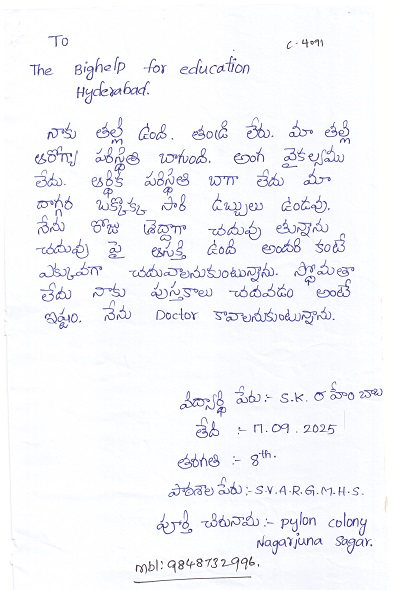 To
C-4091
The Bighelp for education
Hyderabad.
నాకు తల్లి ఉంది. తండ్రి లేరు. మా తల్లి
ఆరోగ్య పరిస్థితి బాగుంది. అంగ వైకల్యము
లేదు. ఆర్థిక పరిస్థితి బాగా లేదు మా
దగ్గర ఒక్కొక్క సారి డబ్బులు ఉండవు.
నేను రోజు శ్రద్దాగా చదువు తున్నాను
చదువు పై ఆసక్తి ఉంది అందరి కంటే
ఎక్కువగా చదువాలనుకుంటున్నాను. స్తోమతా
లేదు నాకు పుస్తకాలు చదవడం అంటే
ఇష్టం. నేను Doctor కావాలనుకుంటున్నాను.
విద్యార్థి పేరు:- S.K. రహీం బాబా
తేది :- 17.09.2025
తరగతి :- 8th.
పాఠశాల పేరు:- S.V.A.R.G.M.H.S.
పూర్తి చిరునామి:- pylon colony
Nagarjuna Sagar.
mbl: 9848732996.